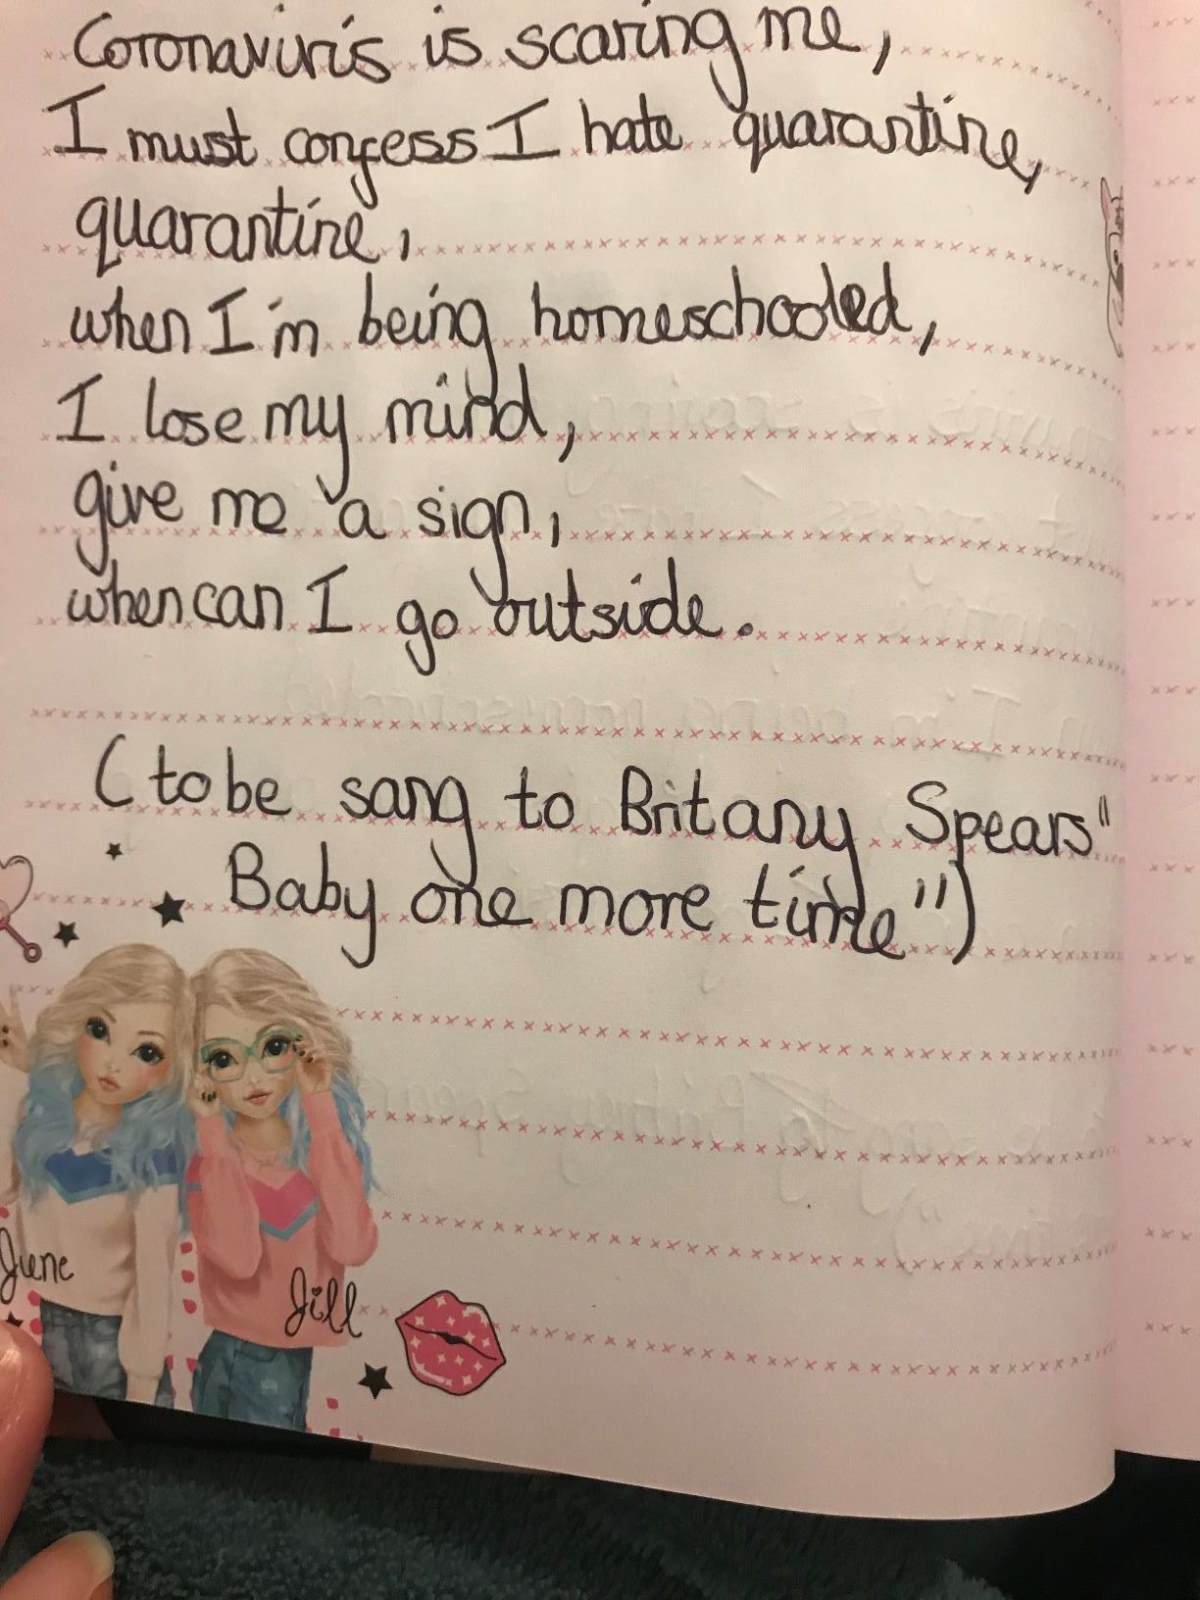 Coronaviris is scaring me,
I must confess I hate quarantine,
quarantine,
when I'm being homeschooled,
I lose my mind,
give me a sign,
when can I go outside.
(to be sang to Britany Spears"
Baby one more time")
June
Jill